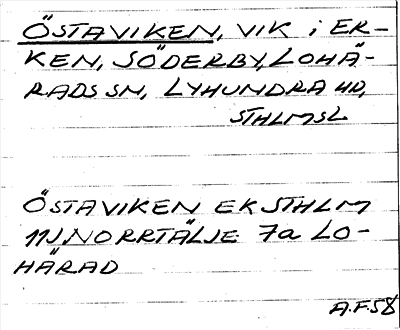 ÖSTAVIKEN, VIK i ER-
KEN, SÖDERBY, LOHÄ-
RADS SN, LYHUNDRA HD,
STHLMSL
ÖSTAVIKEN EK STHLM
11J NORRTÄLJE 7a LO-
HÄRAD
A.F.58